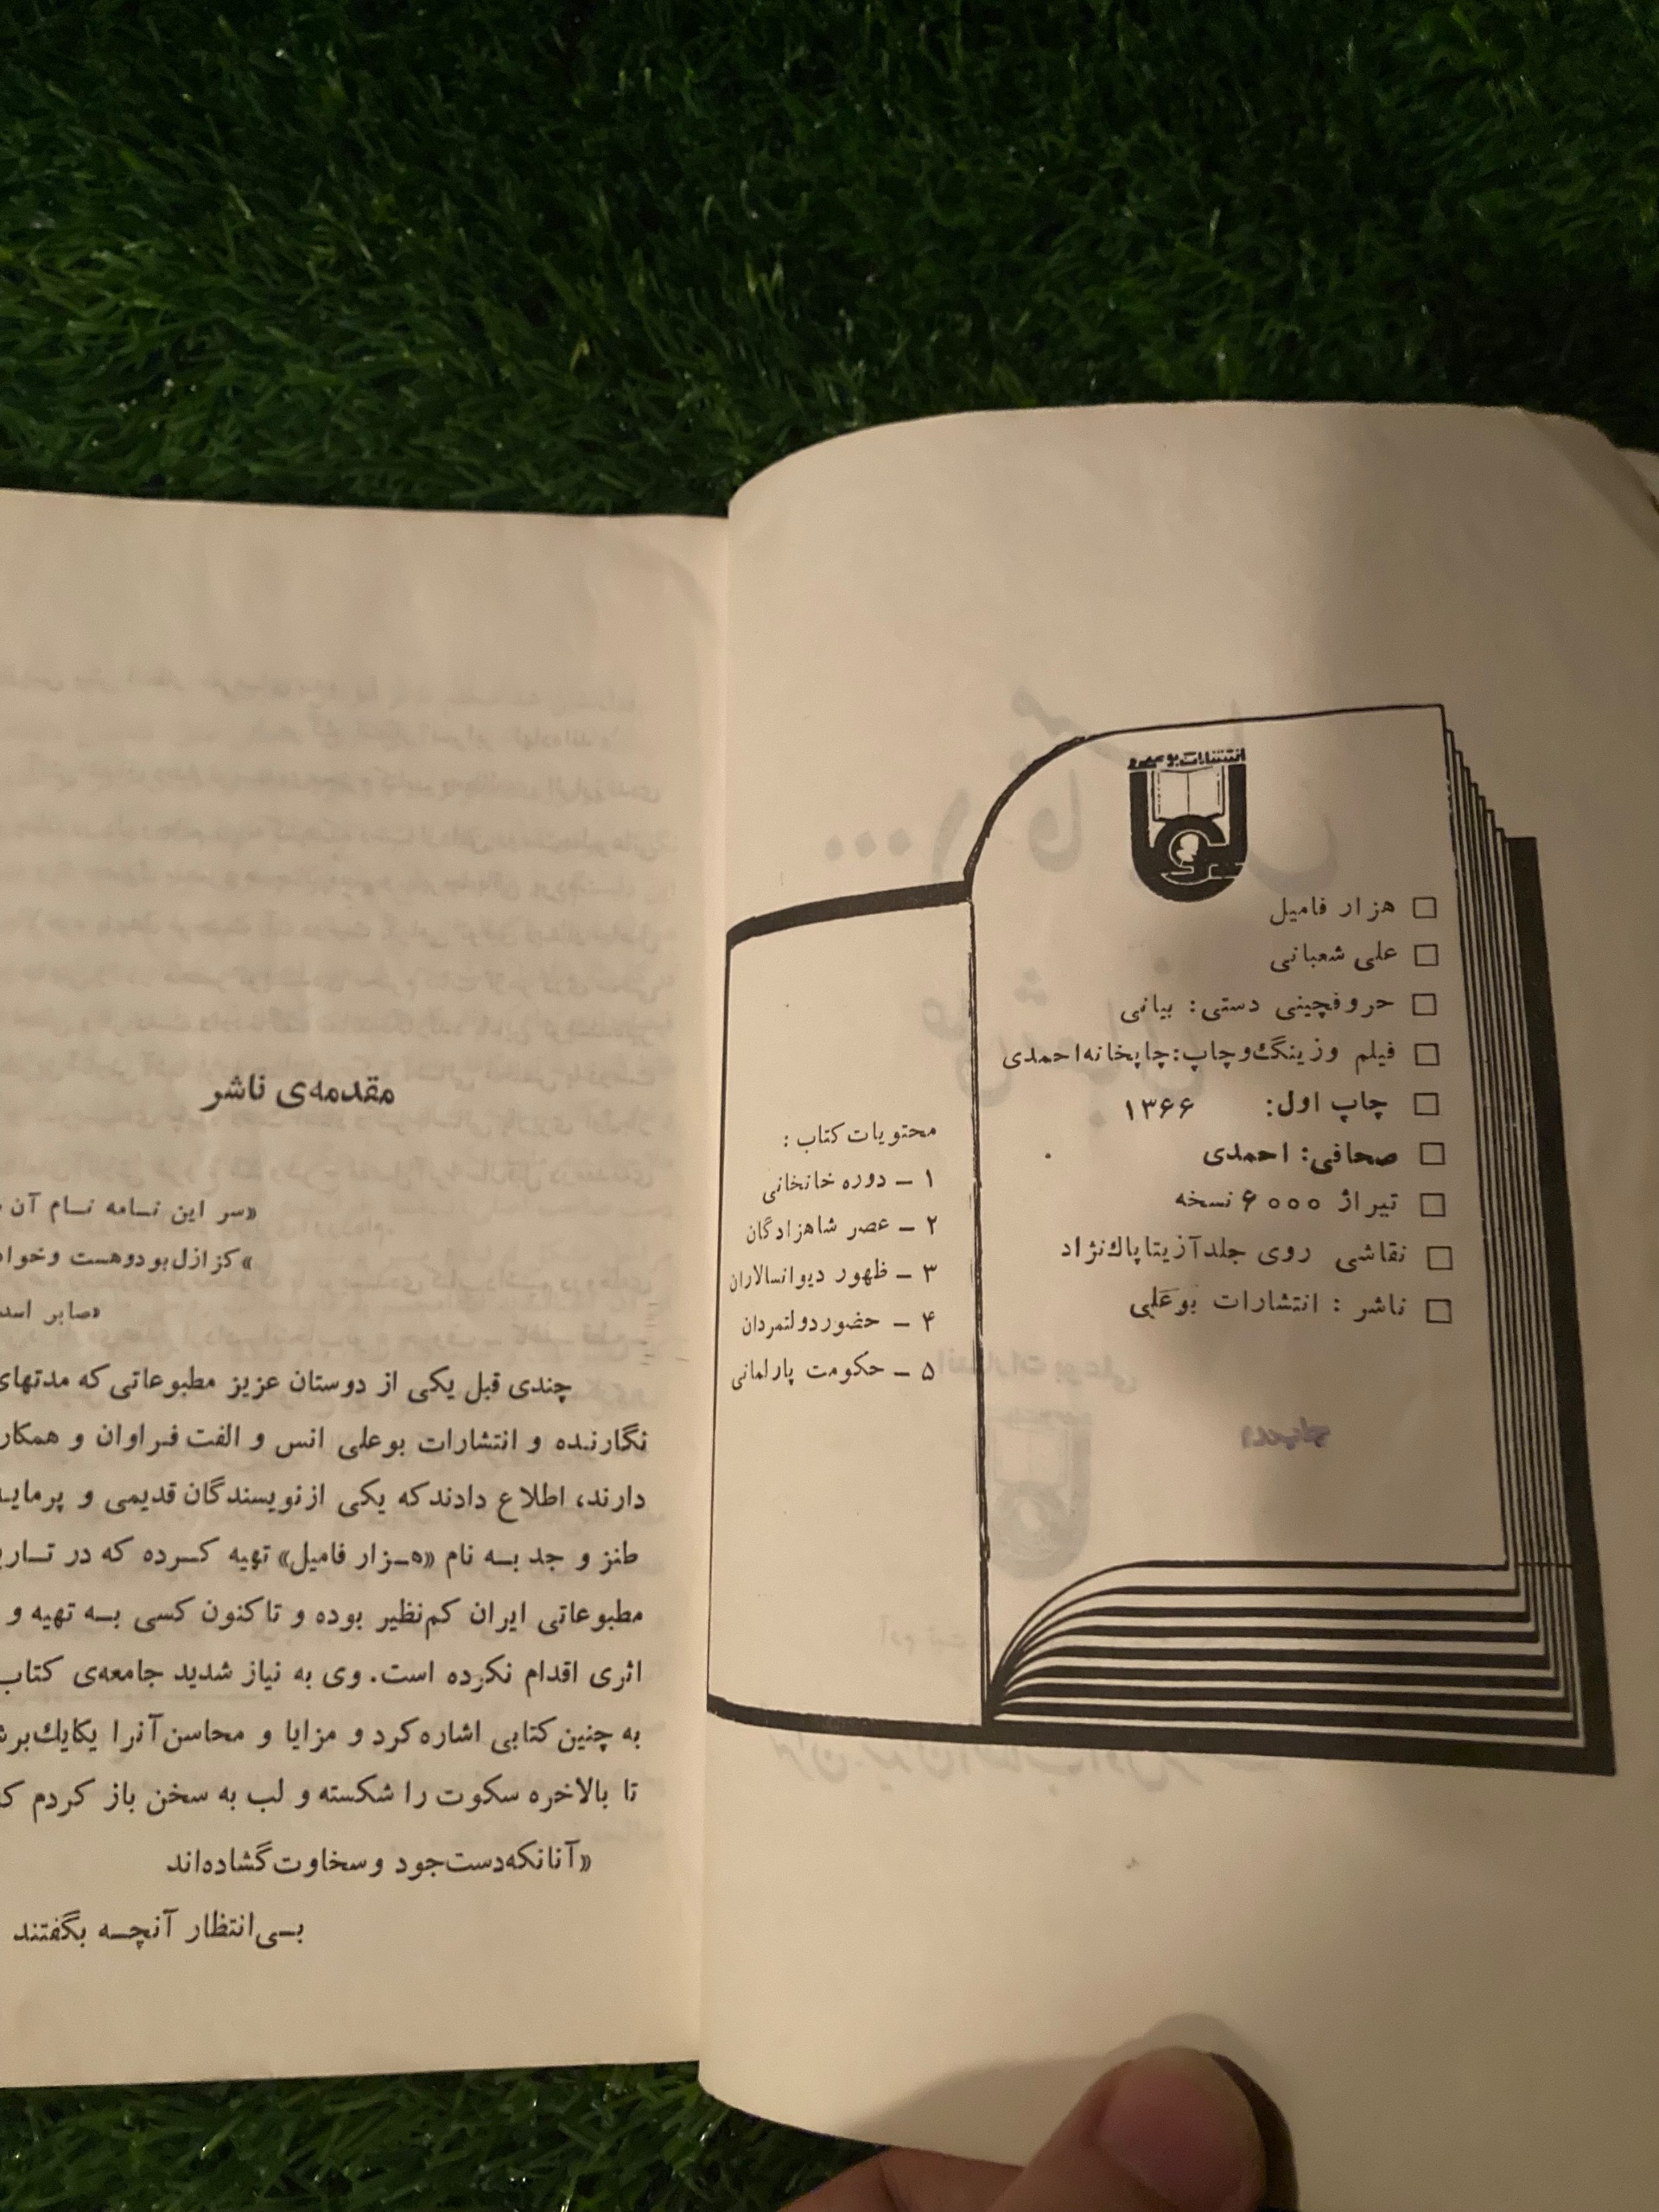 انتشارات بوعلی
هزار فامیل
علی شعبانی
حروفچینی دستی: بیانی
فیلم وزینگ‌وچاپ: چاپخانه‌احمدی
چاپ اول: ۱۳۶۶
صحافی: احمدی
تیراژ ۶۰۰۰ نسخه
نقاشی روی جلد آزیتا پاک‌نژاد
ناشر : انتشارات بوعلی
محتویات کتاب :
۱ – دوره خانخانی
۲ – عصر شاهزادگان
۳ – ظهور دیوانسالاران
۴ – حضور دولتمردان
۵ – حکومت پارلمانی
مقدمه‌ی ناشر
«سر این نـامه نـام آن
«کز ازل بود و هست و
«صابر
چندی قبل یکی از دوستان عزیز مطبوعاتی که مدتهای
نگارنـده و انتشارات بوعلی انس و الفت فـراوان و
دارند، اطلاع دادند که یکی از نویسندگان قدیمی و
طنز و جد بـه نام «هـزار فامیل» تهیه کـرده که در
مطبوعاتی ایران کم‌نظیر بوده و تاکنون کسی بـه تهیه و
اثری اقدام نکرده است. وی به نیاز شدید جامعه‌ی
به چنین کتابی اشاره کرد و مزایا و محاسن آنرا یکایک
تا بالاخره سکوت را شکسته و لب به سخن باز کردم
«آنانکه دست جود و سخاوت گشاده‌اند
بـی‌انتظار آنچـه بگفتند